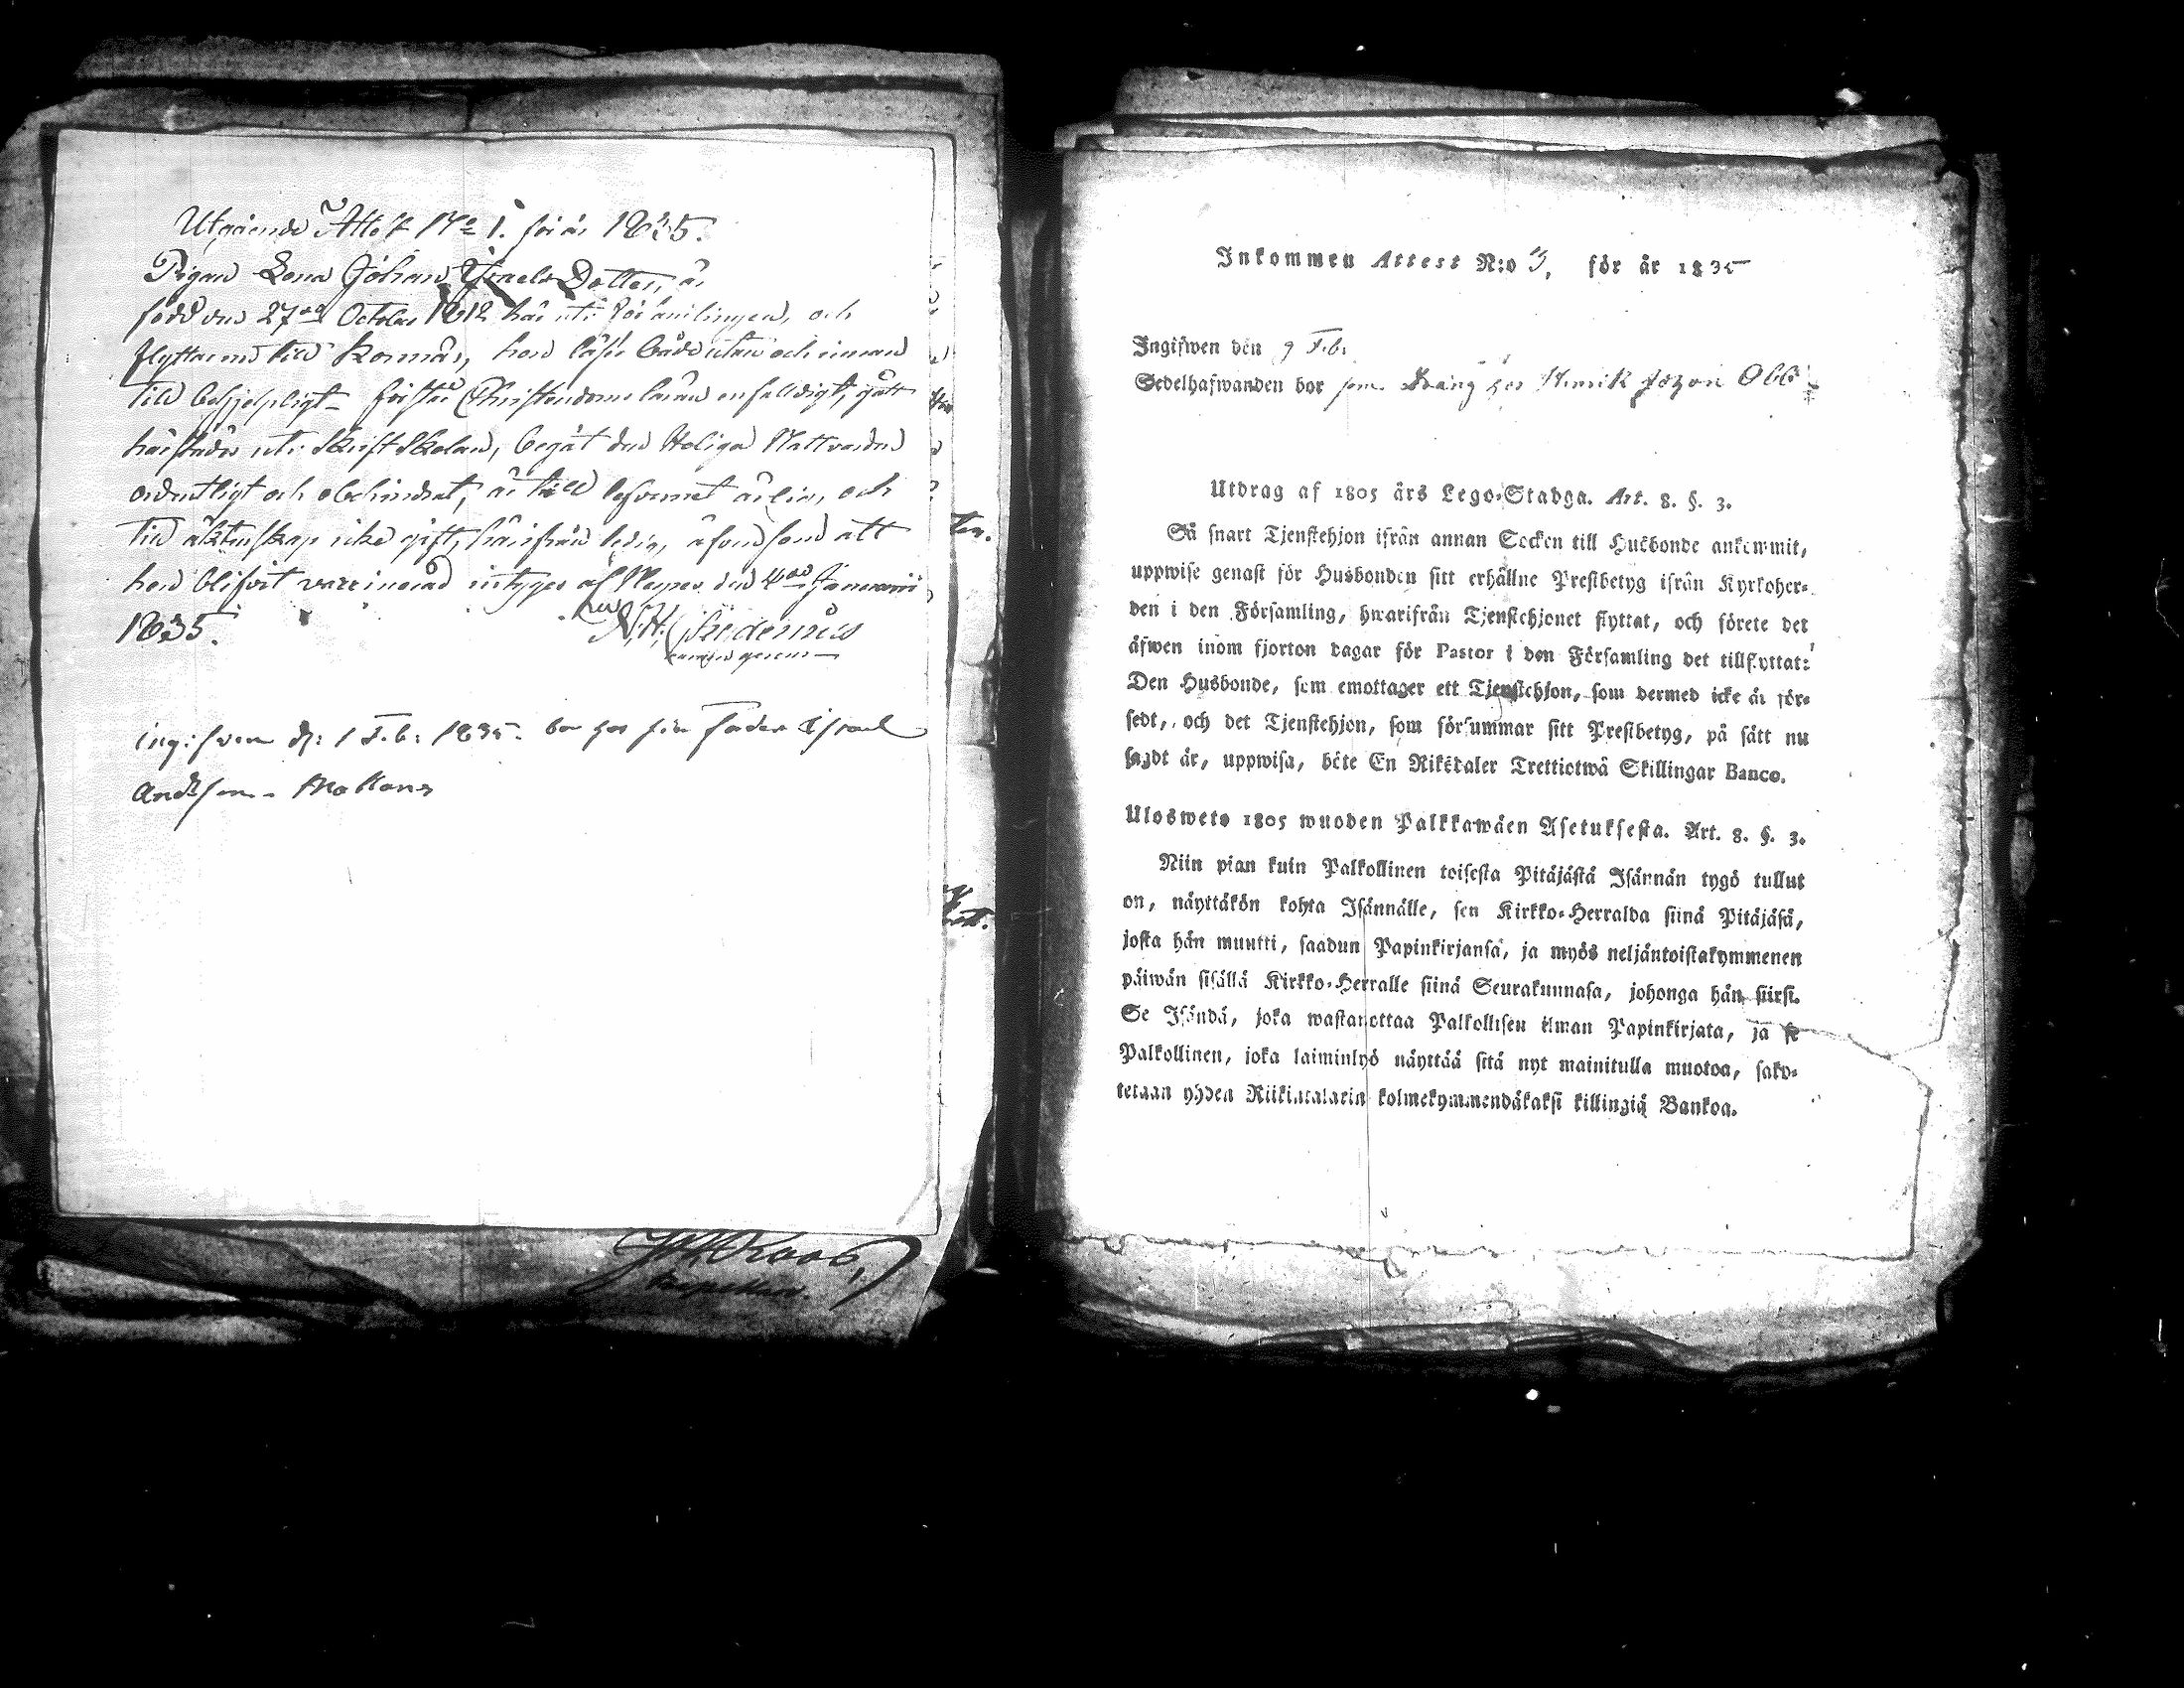 Utgående Attest No 1. för år 1835.
Pigan Lena Johan Israels Dotter, är
född den 27de October 1812 här uti Församlingen, och
flyttar nu till Kornnäs, hon läser både utan och innan
till behjelpligt förstår Christendoms läran enfalldigt, gått
härstädes uti Skriftskolan, begåt den Heliga Nattvarden
ordentligt och obehindrat, är till lefvernet ärlig, och
till äktenskap icke gift, härifrån ledig, äfvensom att
hon blifvit vaccinerad intygar af den 4de Januarii
1835. N.H.
ingifven d: 1 Feb: 1835. bor hos sin fader Israel
Andersson
ten.
Capellan.
Inkommen Attest N:o 3, för år 1835
Ingifwen den 9 Feb:
Sedelhafwanden bor som Dräng hos Henrik
Utdrag af 1805 års Lego-Stadga. Art. 8. §. 3.
Så snart Tjenstehjon ifrån annan Socken till Husbonde ankommit,
uppwise genast för Husbonden sitt erhållne Prestbetyg ifrån Kyrkoher-
den i den Församling, hwarifrån Tjenstehjonet flyttat, och förete det
äfwen inom fjorton dagar för Pastor i den Församling det tillflyttat:
Den Husbonde, som emottager ett Tjenstehjon, som dermed icke är för-
sedt, och det Tjenstehjon, som försummar sitt Prestbetyg, på sätt nu
sagdt är, uppwisa, böte En Riksdaler Trettiotwå Skillingar Banco.
Ulosweto 1805 wuoden Palkkawäen Asetuksesta. Art. 8. §. 3.
Niin pian kuin Palkollinen toisesta Pitäjästä Isännän tygö tullut
on, näyttäkön kohta Isännälle, sen Kirkko-Herralda siinä Pitäjäsä,
josta hän muutti, saadun Papinkirjansa, ja myös neljäntoistakymmenen
päiwän sisällä Kirkko-Herralle siinä Seurakunnasa, johonga hän siirsi.
Se Isändä, joka wastanottaa Palkollisen ilman Papinkirjata, ja se
Palkollinen, joka laiminlyö näyttää sitä nyt mainitulla muotoa, sako-
tetaan yhden Riikintalarin kolmekymmendäkaksi killingiä Bankoa.